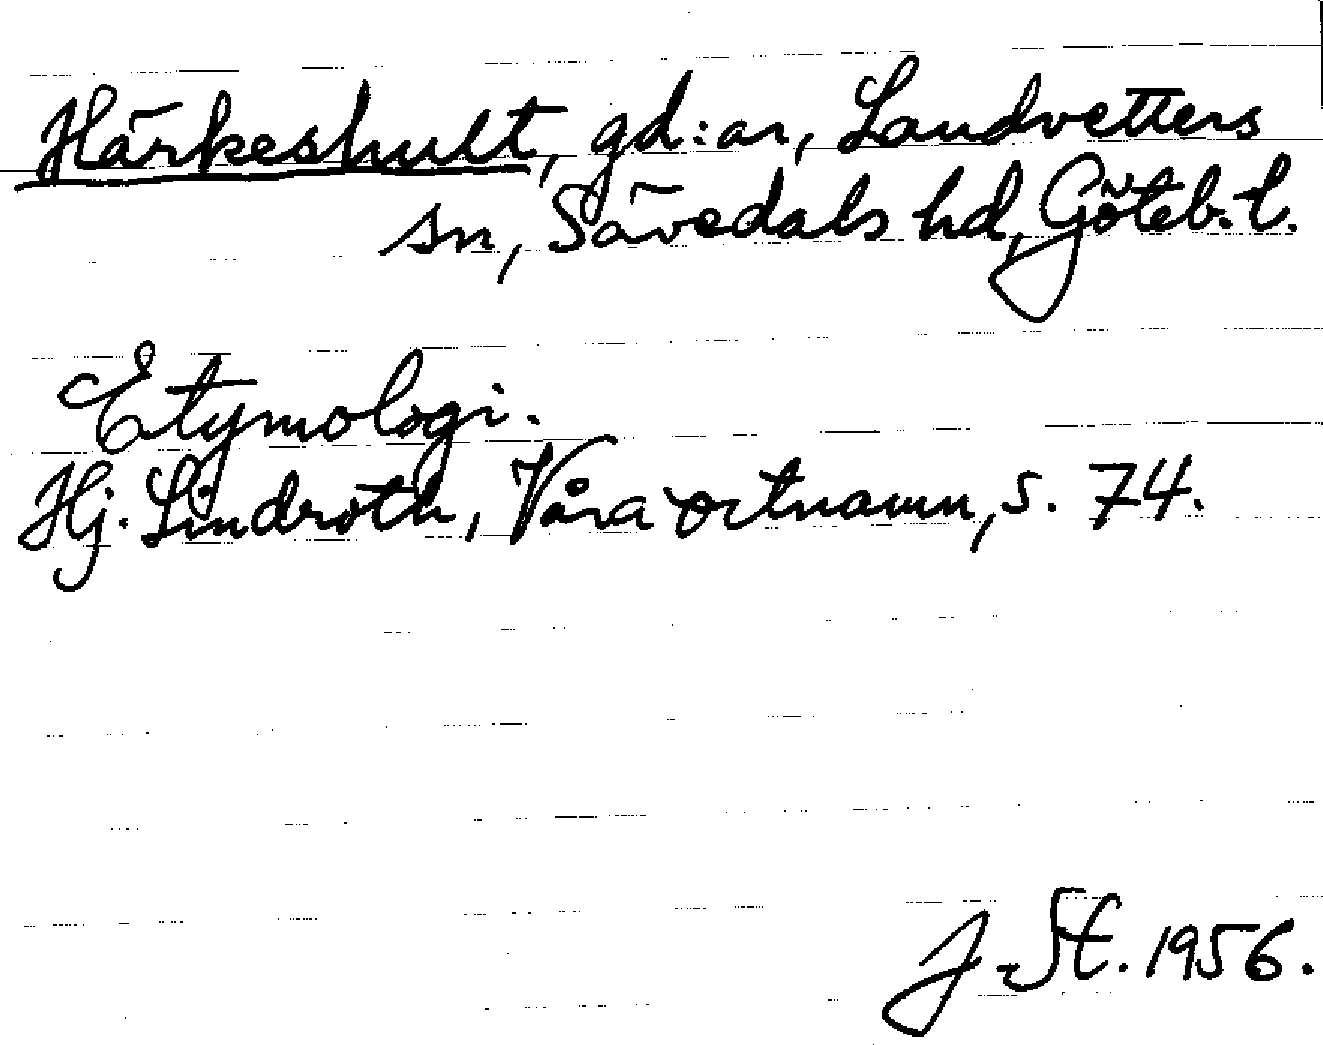 Härkeshult, gd:ar, Landvetters
sn, Sävedals hd, Göteb. l.
Etymologi.
Hj. Lindroth, Våra ortnamn, s. 74.
J. St. 1956.